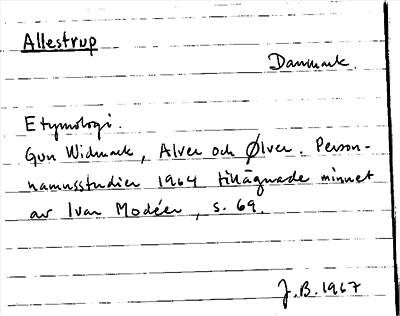 Allestrup
Danmark.
Etymologi.
Gun Widmark, Alver och Ølver. Person-
namnsstudier 1964 tillägnade minnet
av Ivar Modéer, s. 69.
J.B. 1967